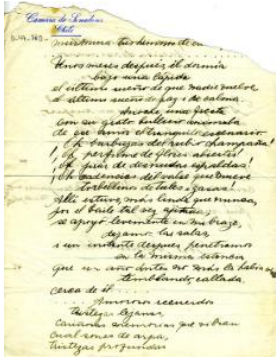 Camara de Senadores
Chile
murmura
Unos meses después él dormía
bajo una lápida
el último sueño de que nadie vuelve
el último sueño de paz i de calma
Anoche una fiesta
con su grato bullicio animaba
de que amor el tranquilo escenario
Oh burbujas del rubio champaña!
Oh perfume de flores abiertas!
Oh girar de desnudas espaldas!
Oh cadencias del valse que mueve
torbellinos de tules i gasas!
Allí estuvo, más linda que nunca,
por el baile tal vez
se apoyó levemente en mi brazo,
dejamos las salas
i un instante después penetramos
en la misma estancia
que un año antes no más la había
temblando callada,
cerca de él
Amorosos recuerdos
tristezas lejanas
cariñosas memorias que vibran
cual sones de arpa,
tristezas profundas